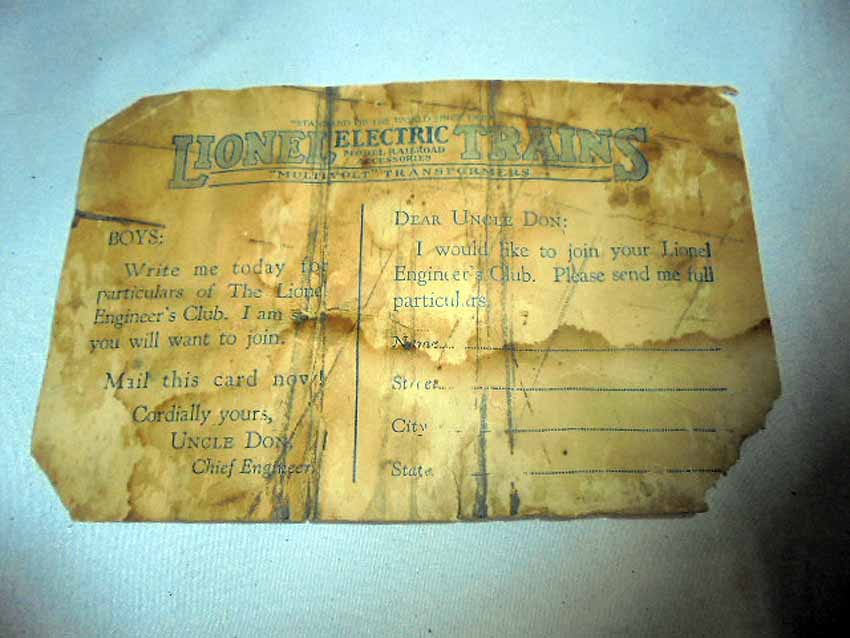 "STANDARD OF THE WORLD SINCE
LIONEL ELECTRIC TRAINS
MODEL RAILROAD
ACCESSORIES
"MULTIVOLT" TRANSFORMERS
BOYS:
Write me today for
particulars of The Lionel
Engineer's Club. I am
you will want to join.
Mail this card now!
Cordially yours,
UNCLE DON,
Chief Engineer.
DEAR UNCLE DON:
I would like to join your Lionel
Engineer's Club. Please send me full
particulars.
Name
Street
City
State